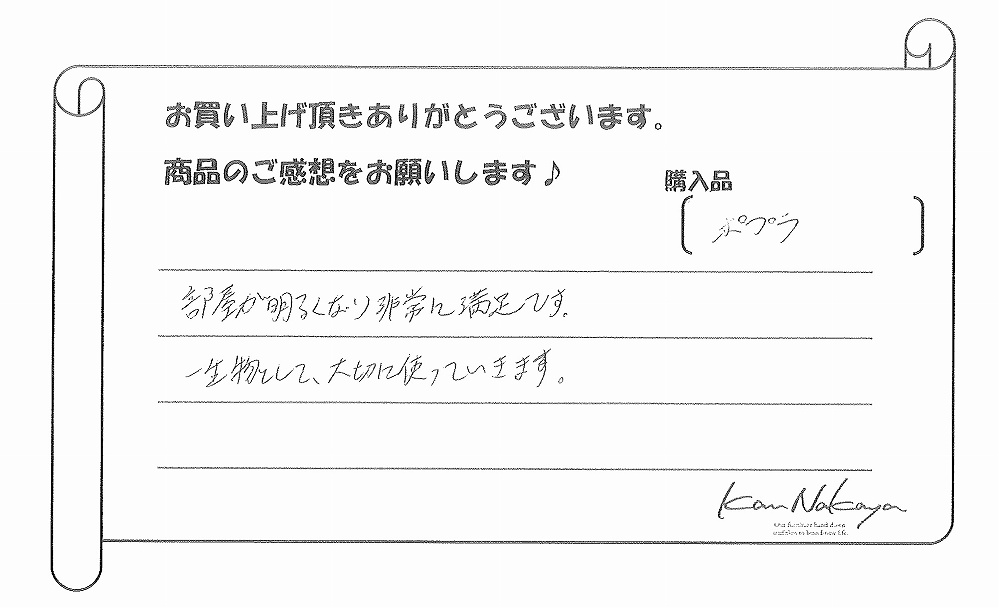 お買い上げ頂きありがとうございます。
商品のご感想をお願いします♪
購入品
ポプラ
部屋が明るくなり非常に満足です。
一生物として、大切に使っていきます。
Kan Nakaya